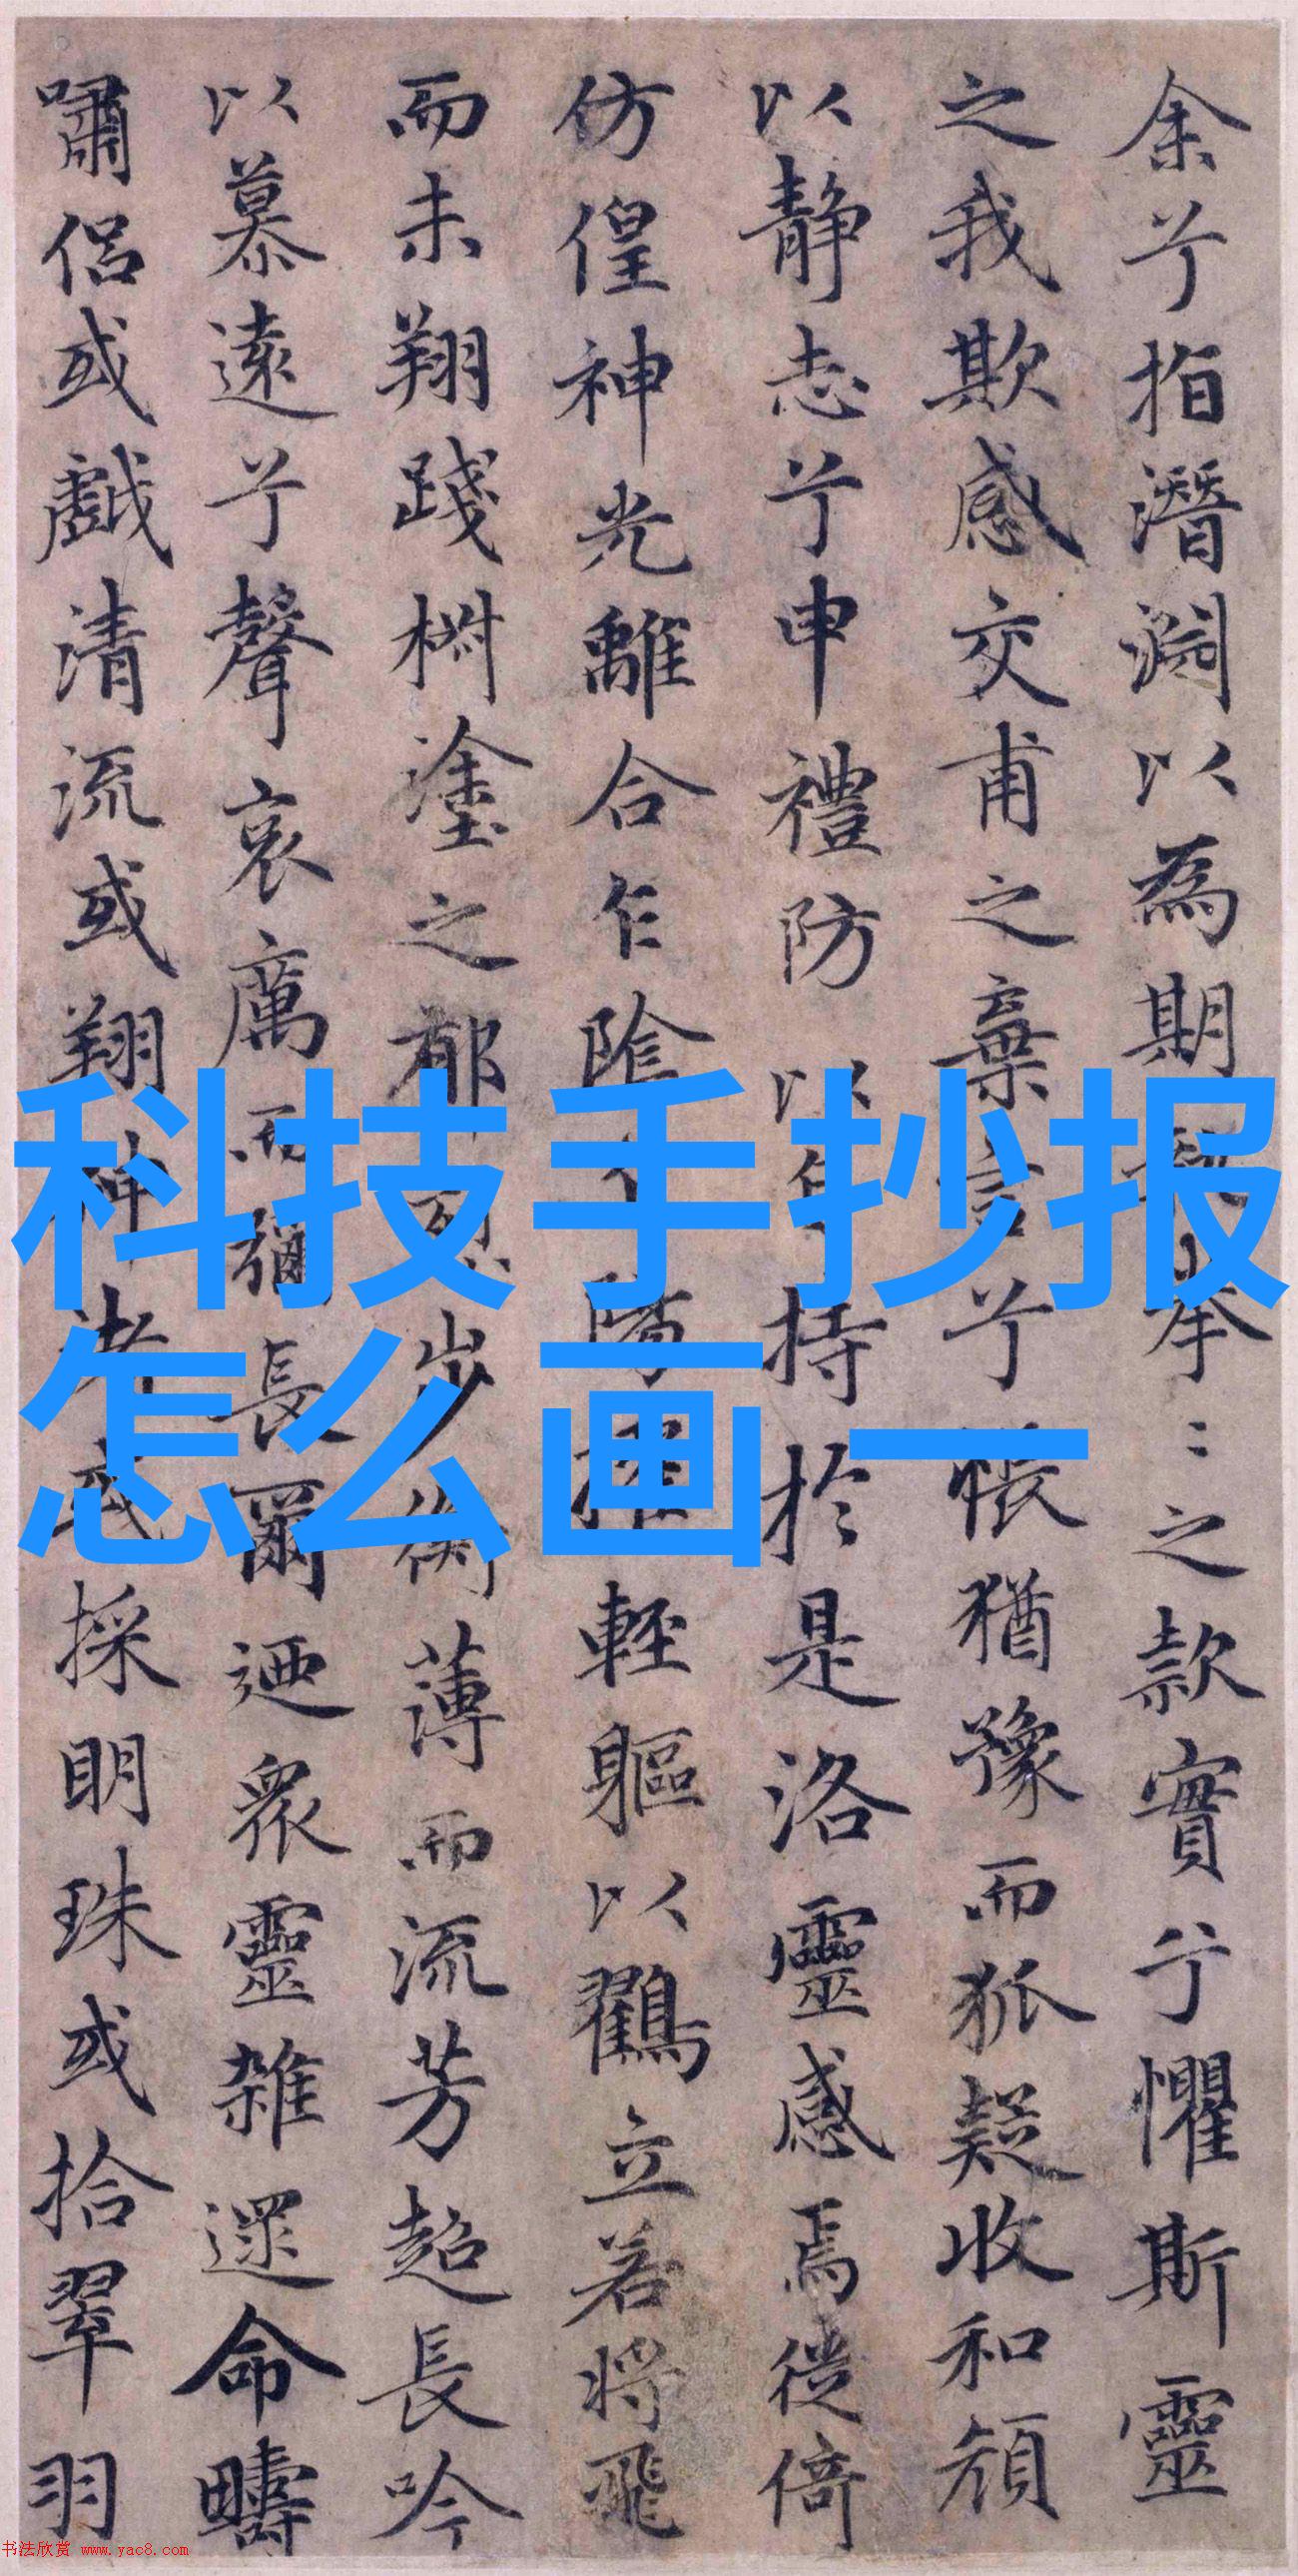 科技手抄报
怎么画一
余兮指潛淵以為期執拳〻之款實兮懼斯靈
之我欺感交甫之棄言兮悵猶豫而狐疑收和顏
以靜志兮申禮防以自持於是洛靈感焉徙倚
仿偟神光離合乍陰乍陽擢輕軀以鶴立若將飛
而未翔踐椒塗之郁烈步衡薄而流芳超長吟
以慕遠兮聲哀厲而彌長爾迺衆靈雜遝命疇
嘯侶或戲清流或翔神渚或採明珠或拾翠羽
书法欣赏 www.yac8.com